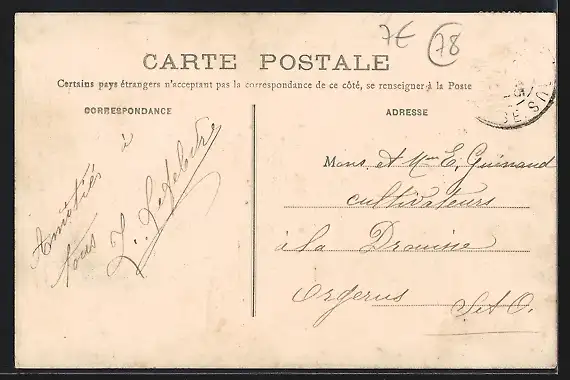 7E 78
CARTE POSTALE
Certains pays étrangers n'acceptant pas la correspondance de ce côté, se renseigner à la Poste
CORRESPONDANCE
ADRESSE
Amitiés à
tous
L. Lefebvre
Mons et Mme E. Guinand
cultivateurs
à la
Orgerus S et O.